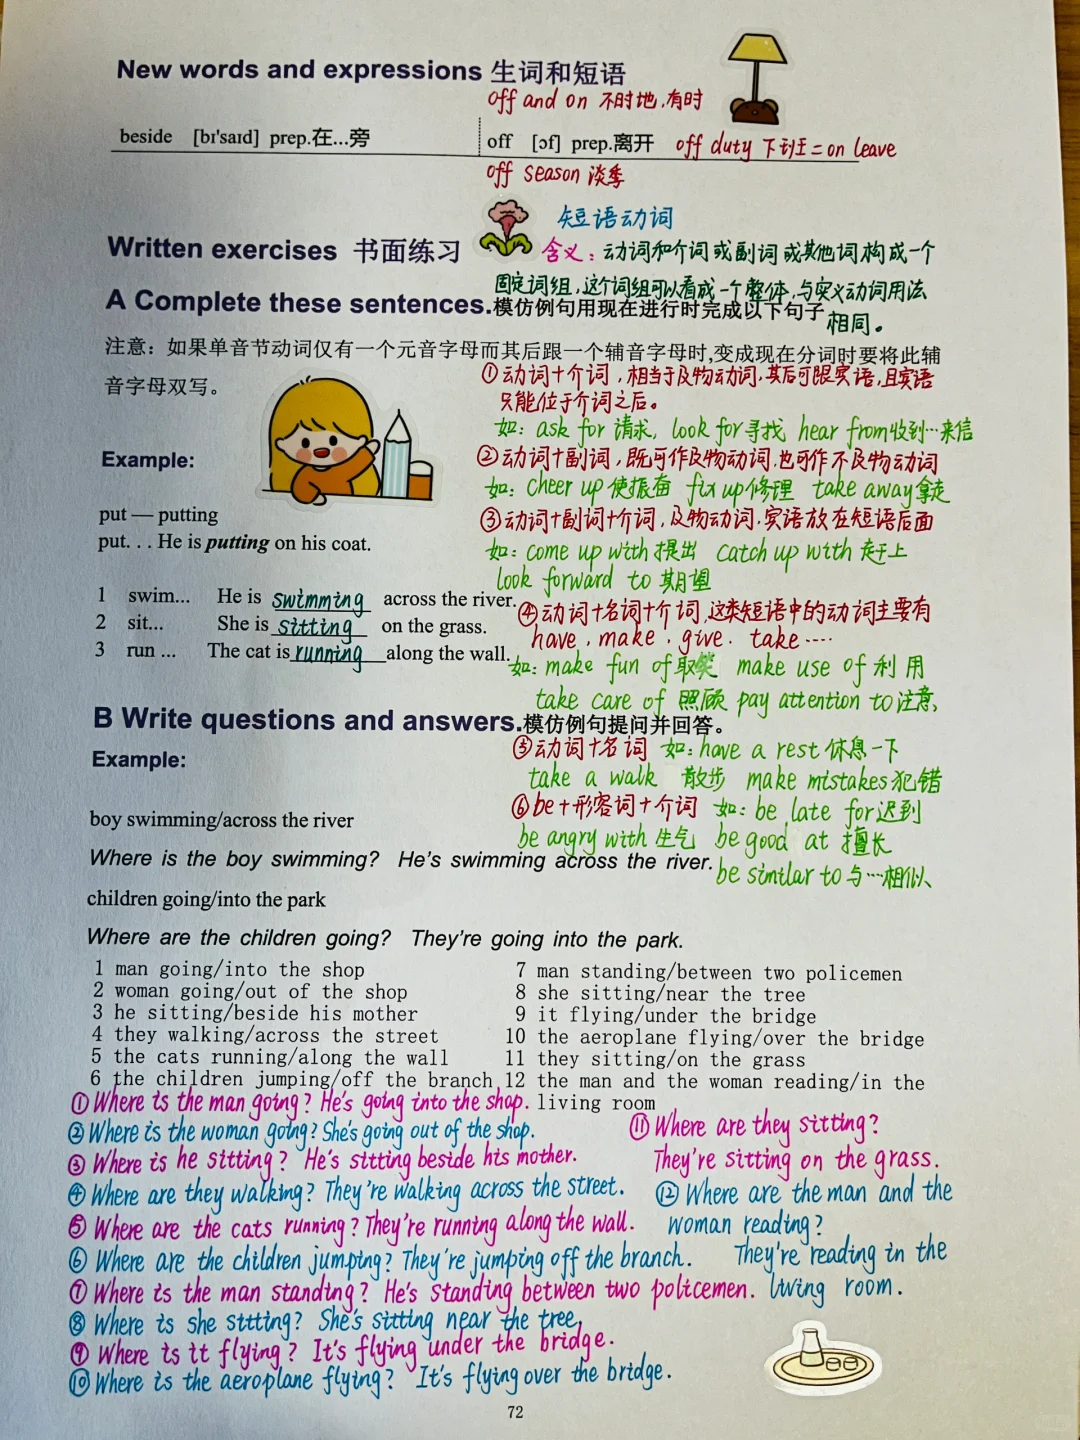 New words and expressions 生词和短语
off and on 不时地,有时
beside [bɪ'saɪd] prep.在…旁
off [ɔf] prep.离开 off duty 下班=on leave
off season 淡季
短语动词
Written exercises 书面练习
含义：动词和介词或副词或其他词构成一个
固定词组,这个词组可以看成一个整体,与实义动词用法
相同。
A Complete these sentences.模仿例句用现在进行时完成以下句子
注意：如果单音节动词仅有一个元音字母而其后跟一个辅音字母时,变成现在分词时要将此辅
音字母双写。
①动词+介词，相当于及物动词.其后可跟宾语,且宾语
只能位于介词之后。
如：ask for 请求, look for寻找 hear from收到…来信
②动词+副词，既可作及物动词.也可作不及物动词
如：cheer up 使振奋 fix up修理 take away拿走
③动词+副词+介词，及物动词.宾语放在短语后面
如：come up with提出 catch up with 赶上
look forward to 期望
④动词+名词+介词,这类短语中的动词主要有
have . make . give . take ····
如：make fun of取笑 make use of 利用
take care of 照顾 pay attention to注意、
Example:
put — putting
put. . . He is putting on his coat.
1 swim... He is swimming across the river.
2 sit... She is sitting on the grass.
3 run ... The cat is running along the wall.
B Write questions and answers.模仿例句提问并回答。
⑤动词+名词 如：have a rest休息一下
take a walk 散步 make mistakes犯错
⑥be+形容词+介词 如：be late for迟到
be angry with 生气 be good at 擅长
be similar to 与…相似
Example:
boy swimming/across the river
Where is the boy swimming? He's swimming across the river.
children going/into the park
Where are the children going? They're going into the park.
1 man going/into the shop
2 woman going/out of the shop
3 he sitting/beside his mother
4 they walking/across the street
5 the cats running/along the wall
6 the children jumping/off the branch
7 man standing/between two policemen
8 she sitting/near the tree
9 it flying/under the bridge
10 the aeroplane flying/over the bridge
11 they sitting/on the grass
12 the man and the woman reading/in the
living room
①Where is the man going? He's going into the shop.
②Where is the woman going? She's going out of the shop.
③Where is he sitting? He's sitting beside his mother.
④Where are they walking? They're walking across the street.
⑤Where are the cats running? They're running along the wall.
⑥Where are the children jumping? They're jumping off the branch.
⑦Where is the man standing? He's standing between two policemen.
⑧Where is she sitting? She's sitting near the tree,
⑨Where is it flying? It's flying under the bridge.
⑩Where is the aeroplane flying? It's flying over the bridge.
⑪Where are they sitting?
They're sitting on the grass.
⑫Where are the man and the
woman reading?
They're reading in the
living room.
72